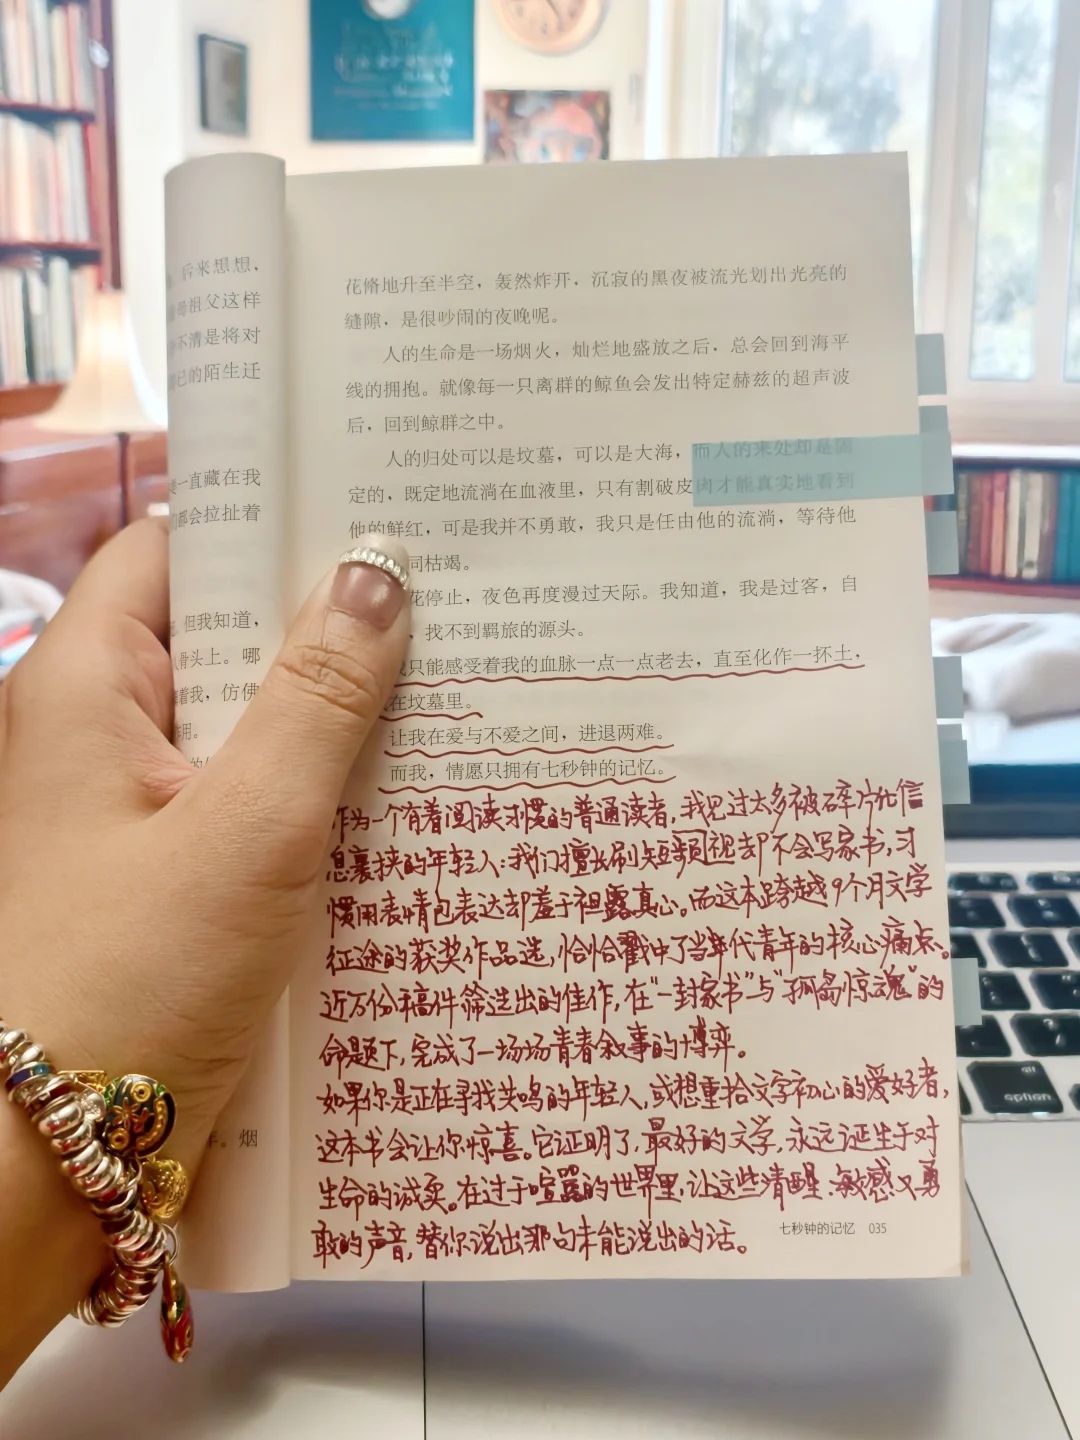 后来想想，
母祖父这样
不清是将对
已的陌生迁
一直藏在我
都会拉扯着
但我知道，
骨头上。哪
着我，仿佛
用。
烟
花脩地升至半空，轰然炸开，沉寂的黑夜被流光划出光亮的
缝隙，是很吵闹的夜晚呢。
人的生命是一场烟火，灿烂地盛放之后，总会回到海平
线的拥抱。就像每一只离群的鲸鱼会发出特定赫兹的超声波
后，回到鲸群之中。
人的归处可以是坟墓，可以是大海，而人的来处却是固
定的，既定地流淌在血液里，只有割破皮肉才能真实地看到
他的鲜红，可是我并不勇敢，我只是任由他的流淌，等待他
同枯竭。
花停止，夜色再度漫过天际。我知道，我是过客，自
，找不到羁旅的源头。
我只能感受着我的血脉一点一点老去，直至化作一抔土，
在坟墓里。
让我在爱与不爱之间，进退两难。
而我，情愿只拥有七秒钟的记忆。
作为一个有着阅读习惯的普通读者，我见过太多被碎片化信
息裹挟的年轻人：我们擅长刷短频视却不会写家书，习
惯用表情包表达却羞于袒露真心。而这本跨越9个月文学
征途的获奖作品选，恰恰戳中了当年代青年的核心痛点。
近万份稿件筛选出的佳作，在“一封家书”与“孤岛惊魂”的
命题下，完成了一场场青春叙事的博弈。
如果你是正在寻找共鸣的年轻人，或想重拾文字初心的爱好者，
这本书会让你惊喜。它证明了，最好的文学，永远诞生于对
生命的诚实。在过于喧嚣的世界里，让这些清醒、敏感又勇
敢的声音，替你说出那句未能说出的话。
七秒钟的记忆 035
option